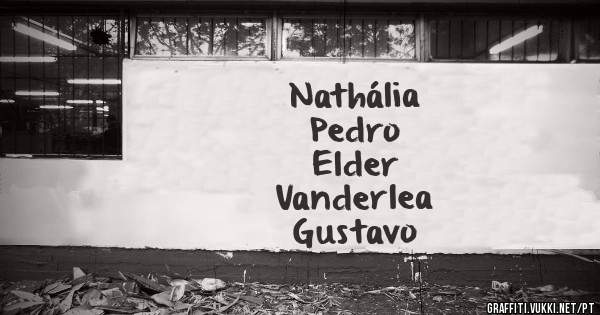 Nathália
Pedro
Elder
Vanderlea
Gustavo
GRAFFITI.VUKKI.NET/PT